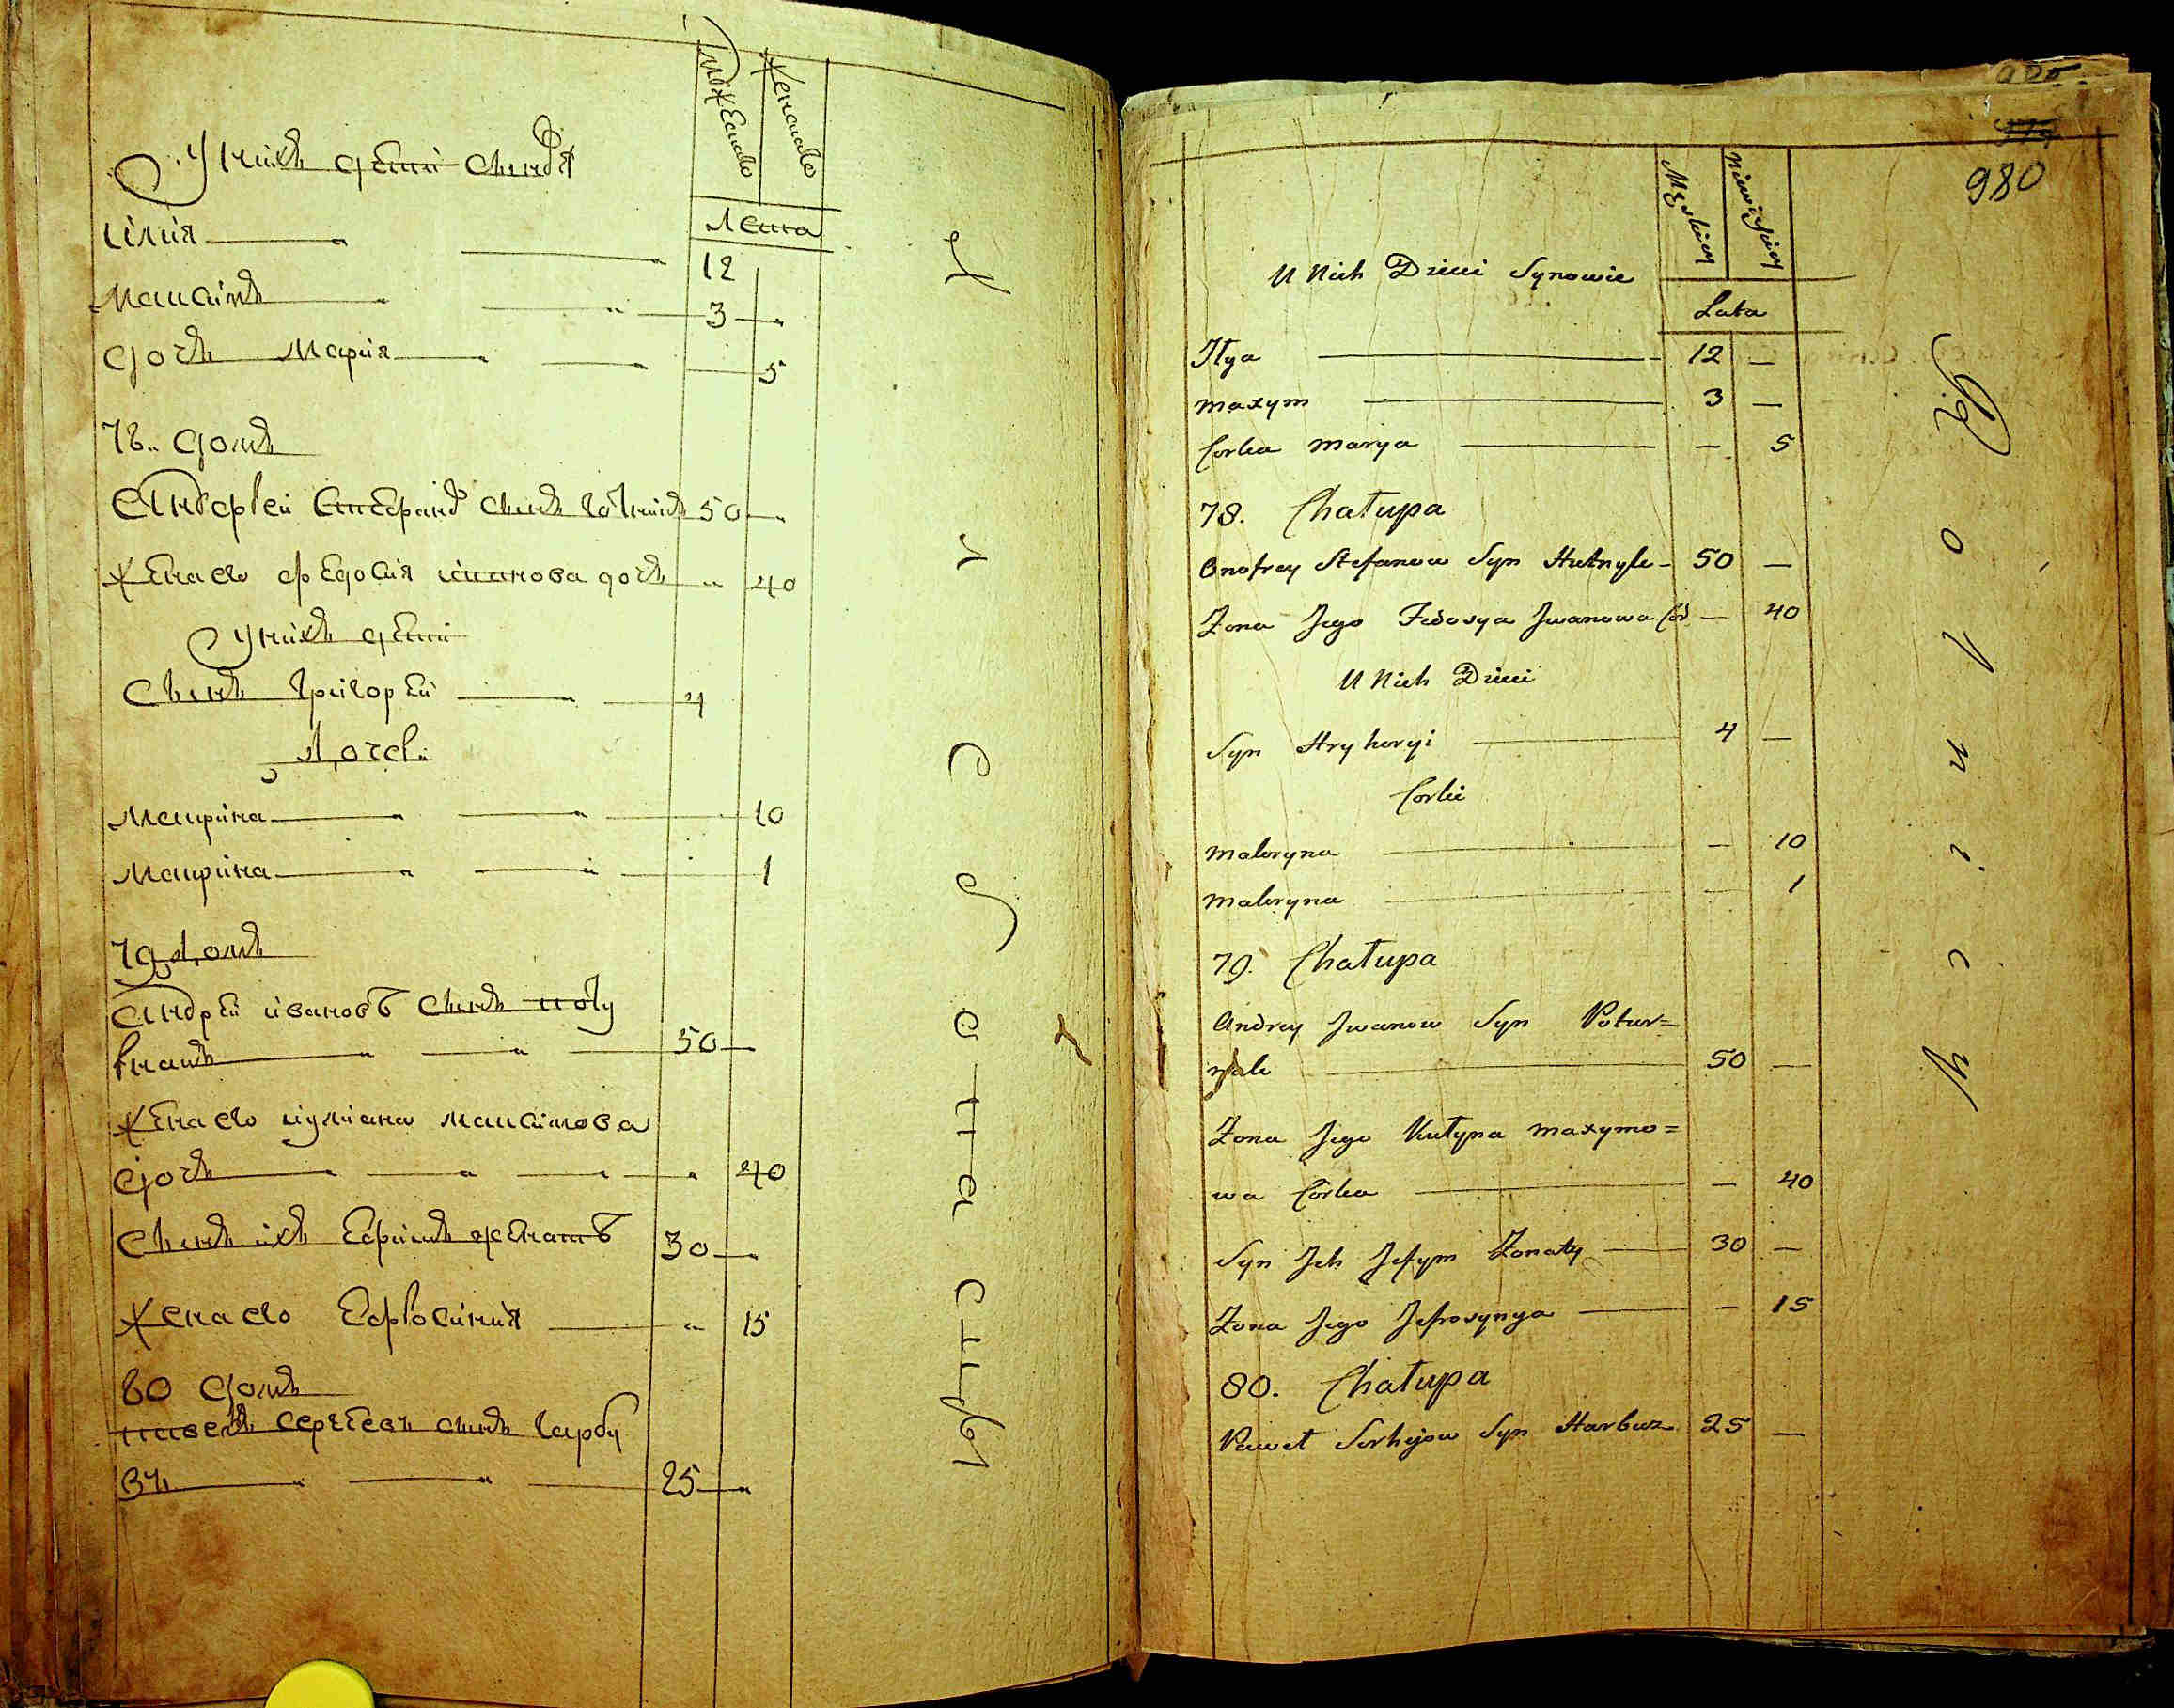 Мужеска
Женска
Лета
У нихъ дети сыновя
Илия 12
Максимъ 3
Дочь Мария 5
78 Домъ
Онофрей Стефановъ Сынъ 50
Жена его Федосия Иванова дочь 40
У нихъ дети
Сынъ Григорей 4
Дочери
Мокрина 10
Макрина 1
79 Домъ
Андрей Ивановъ Сынъ Поту
рнакъ 50
Жена его Максимова
Дочь 40
Сынъ ихъ Ефимъ женатъ 30
Жена его Ефросиния 15
80 Домъ
Павелъ Сергеевъ Сынъ Гарбу
зъ 25
980
Męskiey
Niewieściey
Lata
U Nich Dzieci Synowie
Ilya 12 —
Maxym 3 —
Corka Marya — 5
78. Chałupa
Onofrey Stefanow Syn Hutnyk 50 —
Zona Jego Fedosya Jwanowa Cor — 40
U Nich Dzieci
Syn Hryhoryi 4 —
Corki
Makryna — 10
Makryna — 1
79. Chałupa
Andrey Jwanow Syn Potur=
nak 50 —
Zona Jego Kulyna Maxymo=
wa Córka — 40
Syn Jch Jefym Zonaty 30 —
Zona Jego Jefrosynya — 15
80. Chałupa
Paweł Serhejow Syn Harbuz 25 —
R o l n i c y